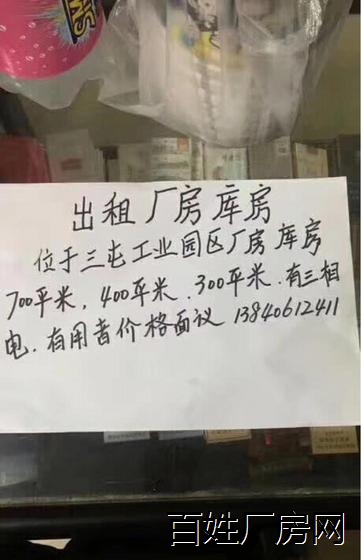 出租厂房库房
位于三屯工业园区厂房库房
700平米,400平米、300平米.有三相
电.有用者价格面议 13840612411
百姓厂房网